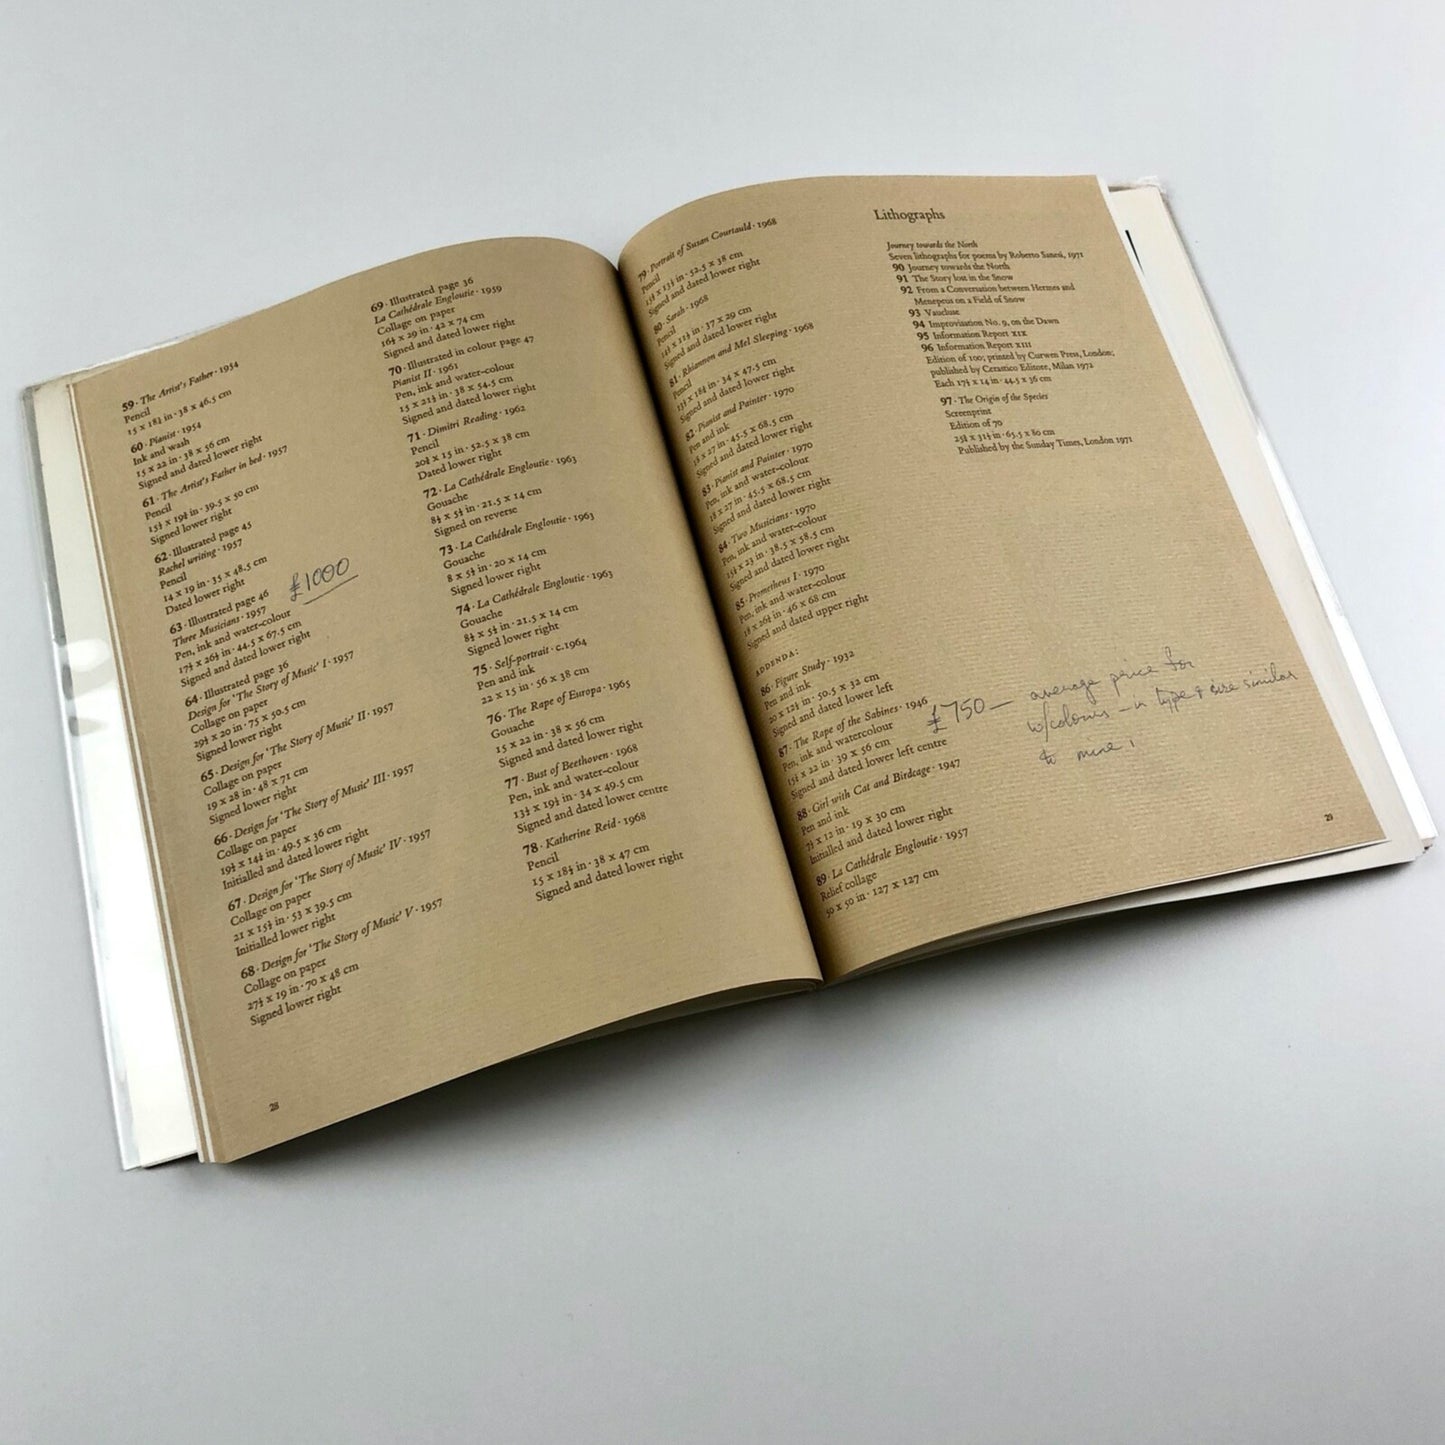 59 · The Artist's Father · 1954
Pencil
15 x 18¼ in · 38 x 46.5 cm
60 · Pianist · 1954
Ink and wash
15 x 22 in · 38 x 56 cm
Signed and dated lower right
61 · The Artist's Father in bed · 1957
Pencil
15½ x 19¾ in · 39.5 x 50 cm
Signed lower right
62 · Illustrated page 45
Rachel writing · 1957
Pencil
14 x 19 in · 35 x 48.5 cm
Dated lower right
£1000
63 · Illustrated page 46
Three Musicians · 1957
Pen, ink and water-colour
17½ x 26½ in · 44.5 x 67.5 cm
Signed and dated lower right
64 · Illustrated page 36
Design for 'The Story of Music' I · 1957
Collage on paper
29½ x 20 in · 75 x 50.5 cm
Signed lower right
65 · Design for 'The Story of Music' II · 1957
Collage on paper
19 x 28 in · 48 x 71 cm
Signed lower right
66 · Design for 'The Story of Music' III · 1957
Collage on paper
19½ x 14¼ in · 49.5 x 36 cm
Initialled and dated lower right
67 · Design for 'The Story of Music' IV · 1957
Collage on paper
21 x 15½ in · 53 x 39.5 cm
Initialled lower right
68 · Design for 'The Story of Music' V · 1957
Collage on paper
27½ x 19 in · 70 x 48 cm
Signed lower right
28
69 · Illustrated page 36
La Cathédrale Engloutie · 1959
Collage on paper
16½ x 29 in · 42 x 74 cm
Signed and dated lower right
70 · Illustrated in colour page 47
Pianist II · 1961
Pen, ink and water-colour
15 x 21½ in · 38 x 54.5 cm
Signed and dated lower right
71 · Dimitri Reading · 1962
Pencil
20¾ x 15 in · 52.5 x 38 cm
Dated lower right
72 · La Cathédrale Engloutie · 1963
Gouache
8½ x 5½ in · 21.5 x 14 cm
Signed on reverse
73 · La Cathédrale Engloutie · 1963
Gouache
8 x 5½ in · 20 x 14 cm
Signed lower right
74 · La Cathédrale Engloutie · 1963
Gouache
8½ x 5½ in · 21.5 x 14 cm
Signed lower right
75 · Self-portrait · c.1964
Pen and ink
22 x 15 in · 56 x 38 cm
76 · The Rape of Europa · 1965
Gouache
15 x 22 in · 38 x 56 cm
Signed and dated lower right
77 · Bust of Beethoven · 1968
Pen, ink and water-colour
13½ x 19½ in · 34 x 49.5 cm
Signed and dated lower centre
78 · Katherine Reid · 1968
Pencil
15 x 18½ in · 38 x 47 cm
Signed and dated lower right
79 · Portrait of Susan Courtauld · 1968
Pencil
in · 52.5 x 38 cm
Signed and dated lower right
80 · Sarah · 1968
Pencil
14½ x 11½ in · 37 x 29 cm
Signed and dated lower right
81 · Rhiannon and Mel Sleeping · 1968
Pencil
13½ x 18¾ in · 34 x 47.5 cm
Signed and dated lower right
82 · Pianist and Painter · 1970
Pen and ink
18 x 27 in · 45.5 x 68.5 cm
Signed and dated lower right
83 · Pianist and Painter · 1970
Pen, ink and water-colour
18 x 27 in · 45.5 x 68.5 cm
Signed and dated lower right
84 · Two Musicians · 1970
Pen, ink and water-colour
15¼ x 23 in · 38.5 x 58.5 cm
Signed and dated lower right
85 · Prometheus I · 1970
Pen, ink and water-colour
18 x 26¾ in · 46 x 68 cm
Signed and dated upper right
ADDENDA:
86 · Figure Study · 1932
Pen and ink
20 x 12½ in · 50.5 x 32 cm
Signed and dated lower left
87 · The Rape of the Sabines · 1946
Pen, ink and watercolour
15½ x 22 in · 39 x 56 cm
Signed and dated lower left centre
88 · Girl with Cat and Birdcage · 1947
Pen and ink
7½ x 12 in · 19 x 30 cm
Initialled and dated lower right
89 · La Cathédrale Engloutie · 1957
Relief collage
50 x 50 in · 127 x 127 cm
Lithographs
Journey towards the North
Seven lithographs for poems by Roberto Sanesi, 1971
90 Journey towards the North
91 The Story lost in the Snow
92 From a Conversation between Hermes and
Menepeus on a Field of Snow
93 Vaucluse
94 Improvisation No. 9, on the Dawn
95 Information Report XIX
96 Information Report XIII
Edition of 100; printed by Curwen Press, London;
published by Cerastico Editore, Milan 1972
Each 17½ x 14 in · 44.5 x 36 cm
97 · The Origin of the Species
Screenprint
Edition of 70
25¾ x 31½ in · 65.5 x 80 cm
Published by the Sunday Times, London 1971
£750 – average price for
w/colours – in type & size similar
to mine
29